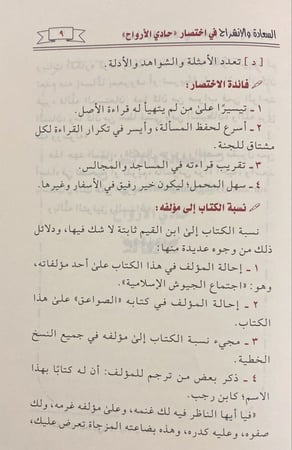 السعادة والانشراح في اختصار «حادي الأرواح»
٩
[ د ] تعدد الأمثلة والشواهد والأدلة.
فائدة الاختصار:
١ - تيسيرًا علىٰ من لم يتهيأ له قراءة الأصل.
٢ - أسرع لحفظ المسألة، وأيسر في تكرار القراءة لكل
مشتاق للجنة.
٣ - تقريب قراءته في المساجد والمجالس.
٤ - سهل المحمل؛ ليكون خير رفيق في الأسفار وغيرها.
نسبة الكتاب إلىٰ مؤلفه:
نسبة الكتاب إلىٰ ابن القيم ثابتة لا شك فيها، ودلائل
ذلك من وجوه عديدة منها:
١ - إحالة المؤلف في هذا الكتاب علىٰ أحد مؤلفاته،
وهو: «اجتماع الجيوش الإسلامية».
٢ - إحالة المؤلف في كتابه «الصواعق» علىٰ هذا
الكتاب.
٣ - مجيء نسبة الكتاب إلىٰ مؤلفه في جميع النسخ
الخطية.
٤ - ذكر بعض من ترجم للمؤلف: أن له كتابًا بهذا
الاسم؛ كابن رجب.
«فيا أيها الناظر فيه لك غنمه، وعلىٰ مؤلفه غرمه، ولك
صفوه، وعليه كدره، وهذه بضاعته المزجاة تعرض عليك،